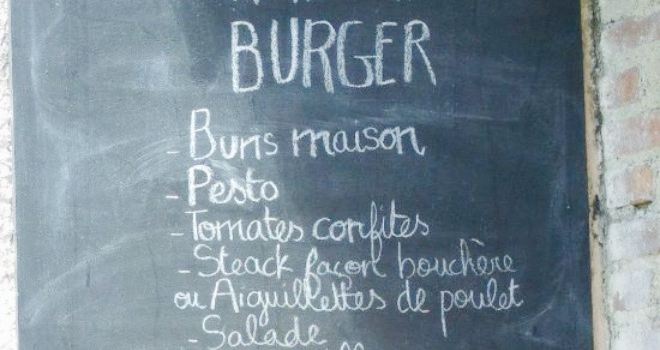 BURGER
- Buns maison
- Pesto
- Tomates confites
- Steack façon bouchère
ou Aiguillettes de poulet
- Salade